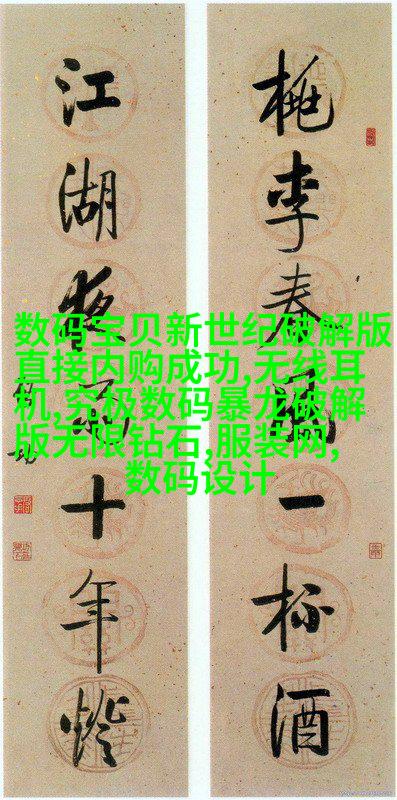 桃李春風一杯酒
江湖夜雨十年燈
数码宝贝新世纪破解版
直接内购成功,无线耳
机,究极数码暴龙破解
版无限钻石,服装网,
数码设计